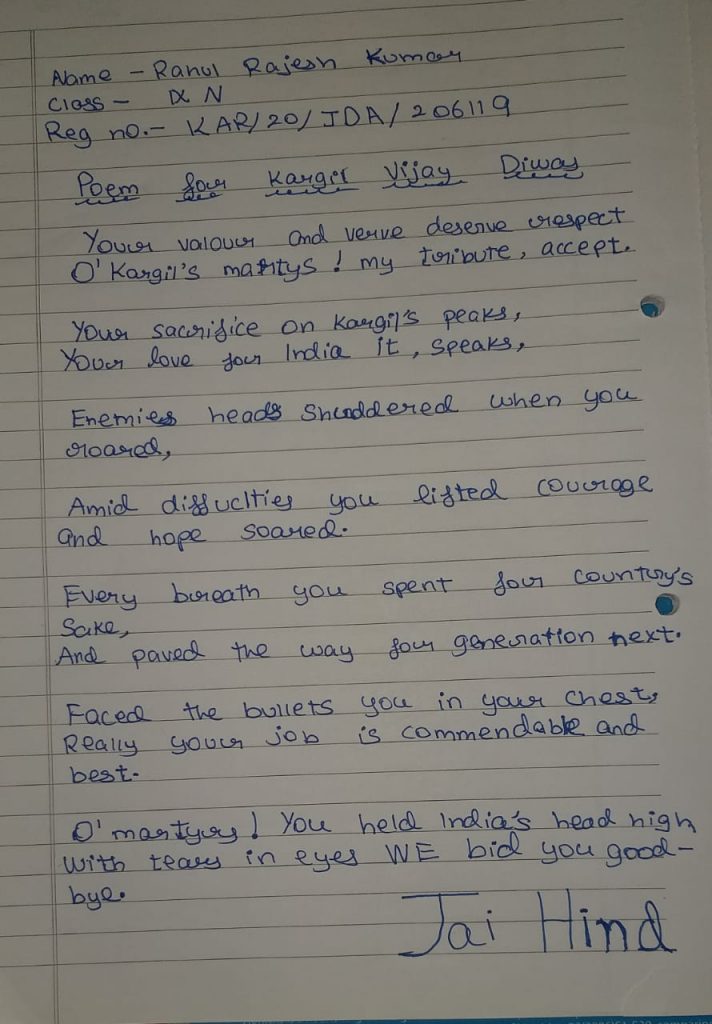 Name - Rahul Rajesh Kumar
Class - IX N
Reg no.- KAR/20/JDA/206119
Poem for Kargil Vijay Diwas
Your valour and verve deserve respect
O' Kargil's martys ! my tribute, accept.
Your sacrifice on Kargil's peaks,
Your love for India it, speaks,
Enemies heads shuddered when you
roared,
Amid diffuclties you lifted courage
and hope soared.
Every breath you spent for country's
Sake,
And paved the way for generation next.
Faced the bullets you in your chest,
Really your job is commendable and
best.
O' martyrs! You held India's head high
With tears in eyes WE bid you good-
bye.
Jai Hind